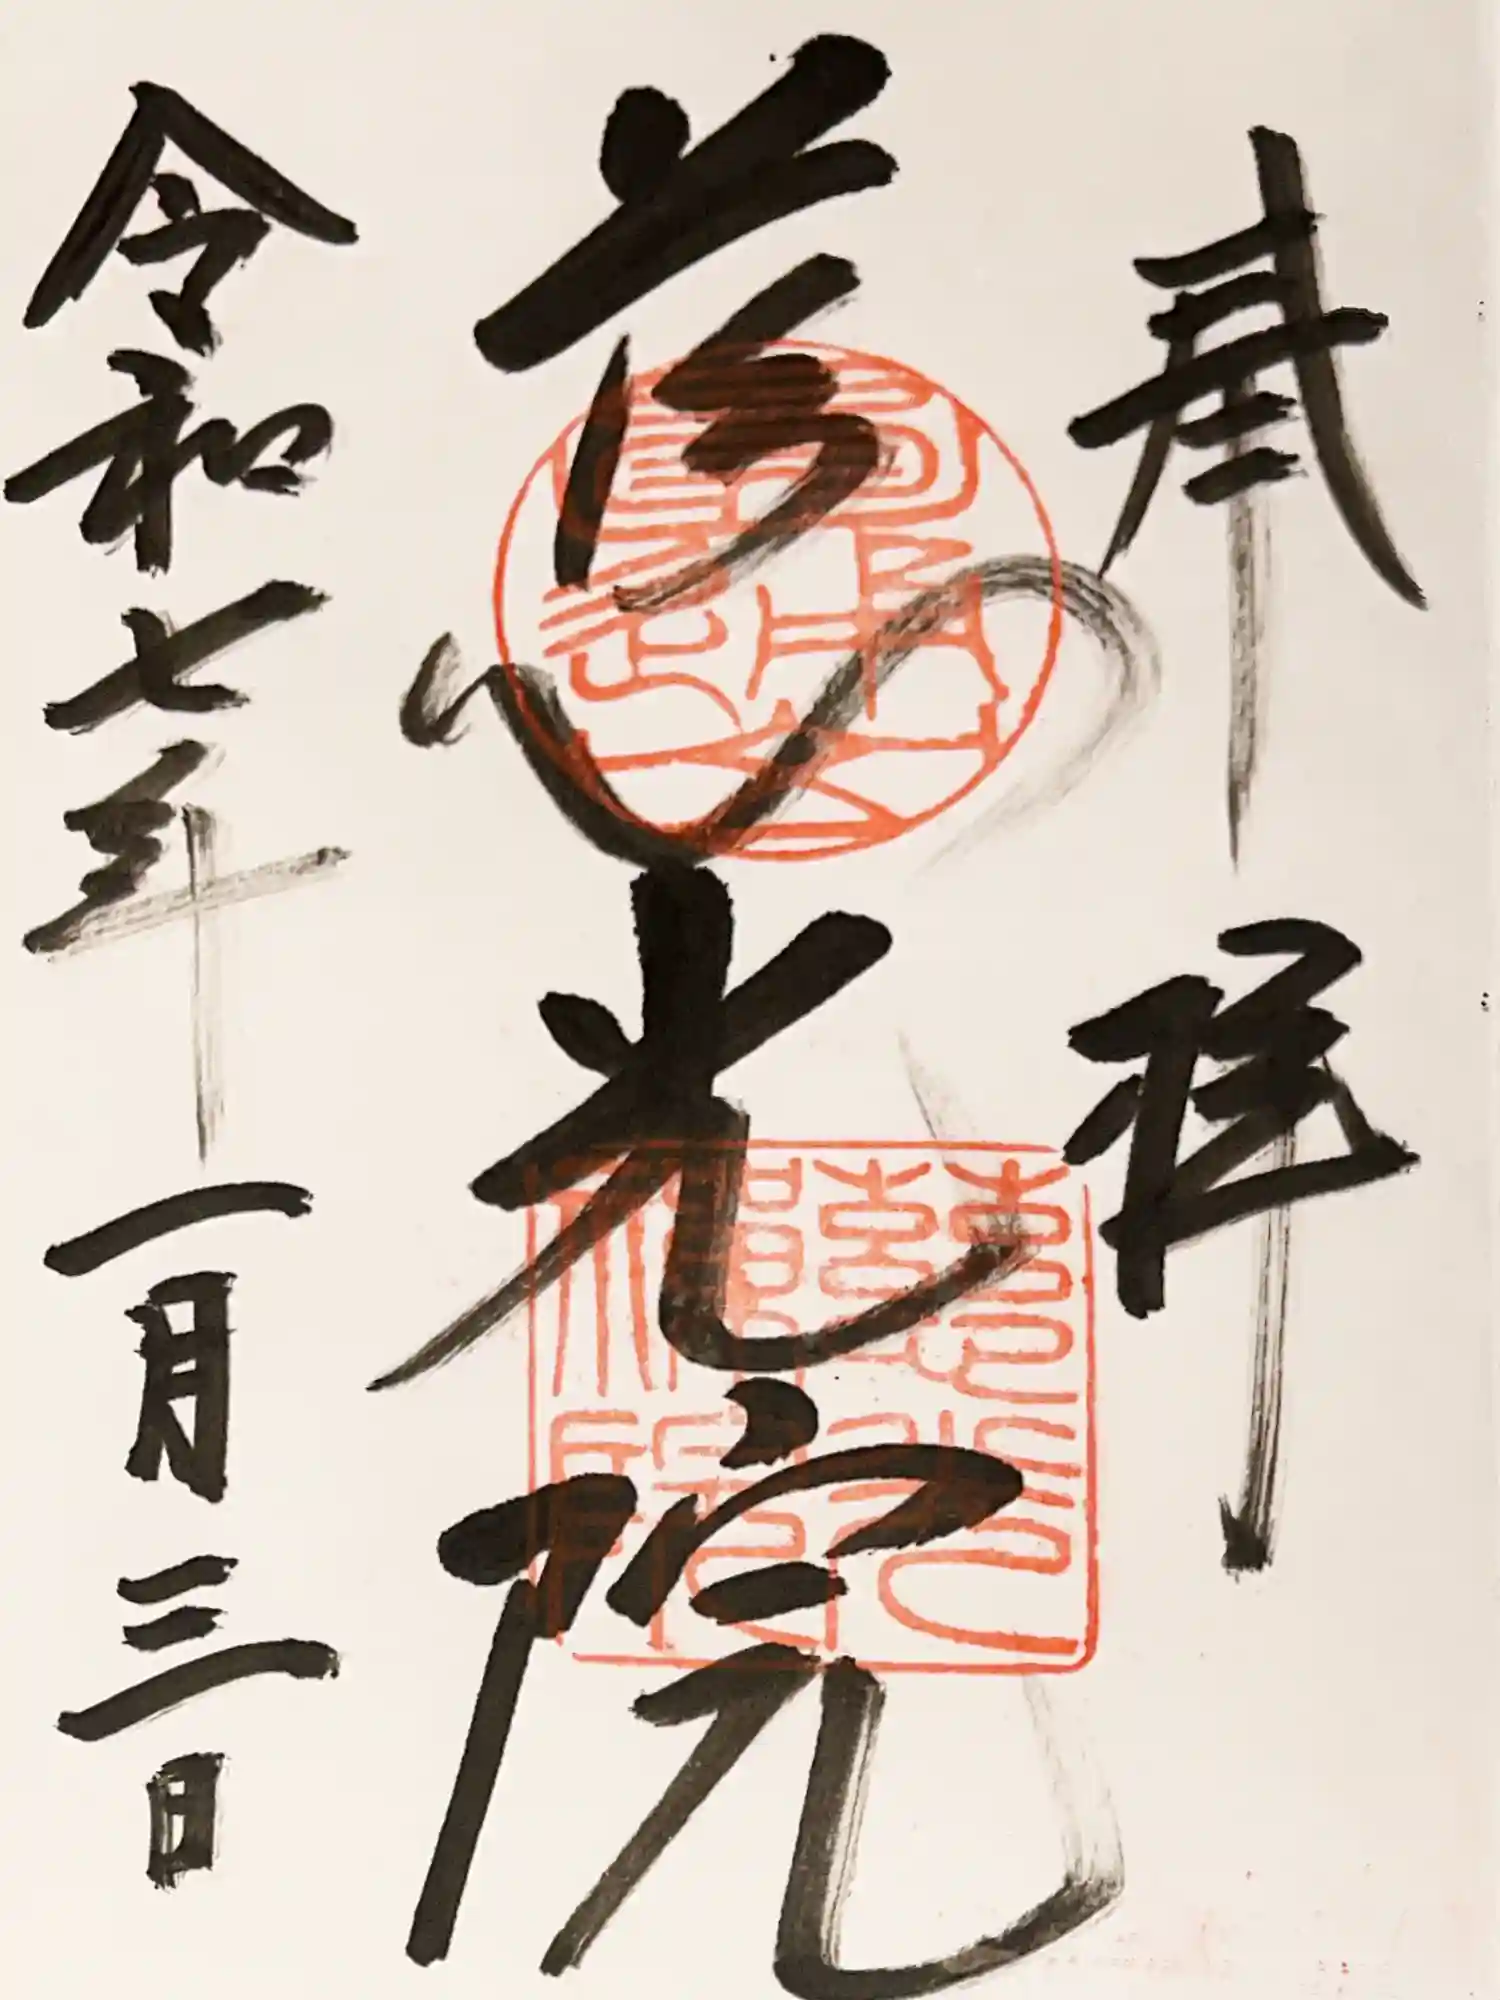 奉拝
慈光院
令和七年一月三日